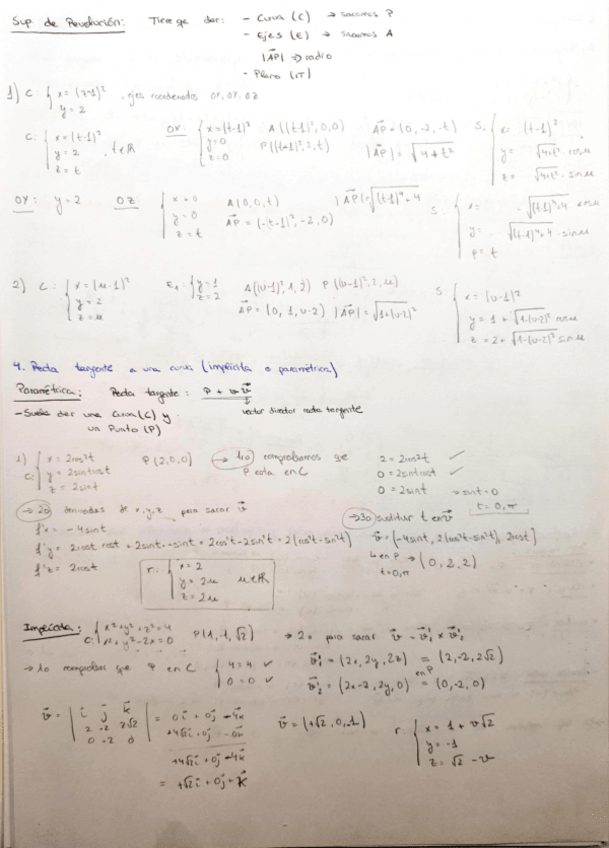 Sup. de Revolución: Tiene que dar: - Curva (C) → sacamos P
- Ejes (E) → sacamos A
|AP| ⇒ radio
- Plano (π)
1) C: { x = (z-1)² , ejes coordenados OX, OY, OZ
y = 2
C: { x = (t-1)² , t ∈ R
y = 2
z = t
OX: { x = (t-1)²
y = 0
z = 0
A((t-1)², 0, 0)
P((t-1)², 2, t)
AP = (0, -2, -t)
|AP| = √4+t²
S. { x = (t-1)²
y = √4+t² · cos u
z = √4+t² · sin u
OY: y = 2
OZ: { x = 0
y = 0
z = t
A(0, 0, t)
AP = (-(t-1)², -2, 0)
|AP| = √(t-1)⁴+4
S: { x = √(t-1)⁴+4 cos u
y = √(t-1)⁴+4 · sin u
z = t
2) C: { x = (u-1)²
y = 2
z = u
E₁: { y = 1
z = 2
A((u-1)², 1, 2) P((u-1)², 2, u)
AP = (0, 1, u-2) |AP| = √1+(u-2)²
S: { x = (u-1)²
y = 1 + √1+(u-2)² cos u
z = 2 + √1+(u-2)² sin u
4. Recta tangente a una curva (implícita o paramétrica)
Paramétrica: Recta tangente: P + v v
vector director recta tangente
- Suele dar una Curva (C) y
un Punto (P)
1) C: { x = 2cos²t
y = 2sint cost
z = 2sint
P(2,0,0)
→ 1o comprobamos que
P esta en C
2 = 2cos²t ✓
0 = 2sint cost ✓
0 = 2sint → sint = 0
t = 0, π
→ 2o derivadas de x, y, z para sacar v
f'x = -4sint
f'y = 2cost cost + 2sint · -sint = 2cos²t - 2sin²t = 2(cos²t - sin²t)
f'z = 2cost
→ 3o sustituir t en v
v = (-4sint, 2(cos²t - sin²t), 2cost)
en P → (0, 2, 2)
t = 0, π
r: { x = 2
y = 2u u ∈ R
z = 2u
Implícita: C: { x² + y² + z² = 4
x² + y² - 2x = 0
P(1, -1, √2)
→ 1o comprobar que P en C { 4 = 4 ✓
0 = 0 ✓
→ 2o para sacar v = v₁ × v₂
v₁ = (2x, 2y, 2z) = (2, -2, 2√2)
en P
v₂ = (2x-2, 2y, 0) = (0, -2, 0)
v = | i j k |
2 -2 2√2
0 -2 0
= 0i + 0j - 4k
+4√2i + 0j - 0k
+4√2i + 0j - 4k
= +√2i + 0j + k
v = (+√2, 0, -1)
r: { x = 1 + v√2
y = -1
z = √2 - v